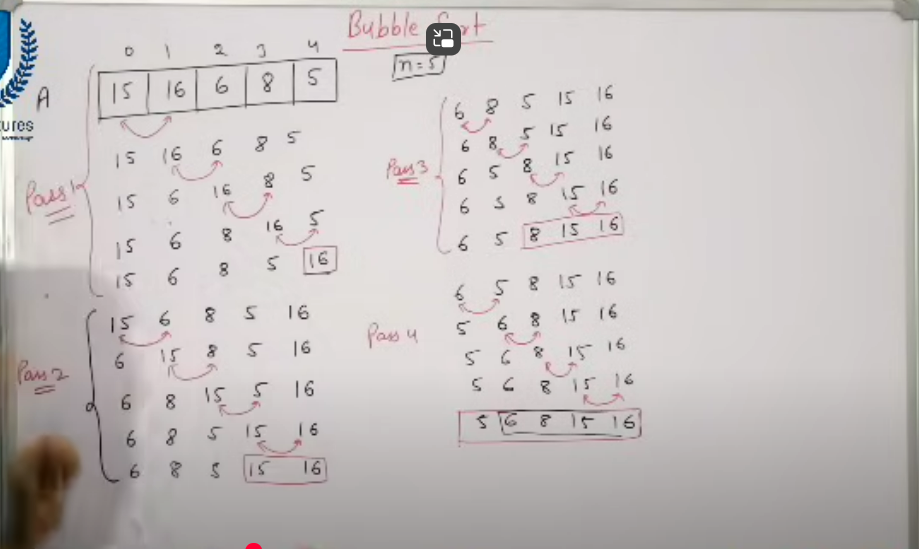 Bubble Sort
n=5
0 1 2 3 4
A
15 16 6 8 5
Pass 1
15 16 6 8 5
15 6 16 8 5
15 6 8 16 5
15 6 8 5 16
Pass 2
15 6 8 5 16
6 15 8 5 16
6 8 15 5 16
6 8 5 15 16
6 8 5 15 16
Pass 3
6 8 5 15 16
6 8 5 15 16
6 5 8 15 16
6 5 8 15 16
6 5 8 15 16
Pass 4
6 5 8 15 16
5 6 8 15 16
5 6 8 15 16
5 6 8 15 16
5 6 8 15 16
ures